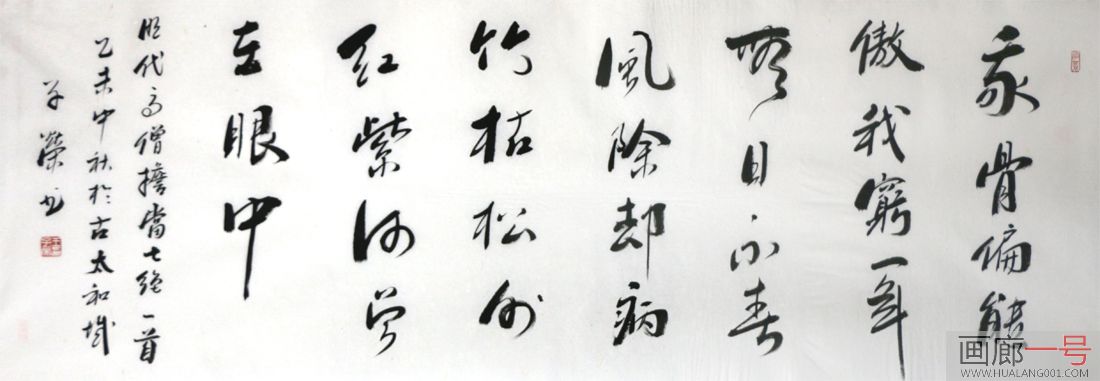 我骨偏能
傲我窮一年
無日不春
風除却病
竹枯松外
紅紫何曾
在眼中
明代高僧擔當七絕一首
乙未中秋於古太和城
學榮书
画廊一号
WWW.HUALANG001.COM